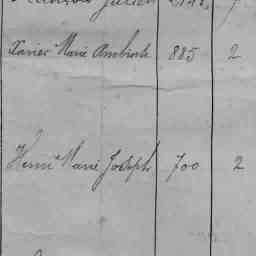 Xavier Marie Ambroise 885 2
Henri Marie Joseph 700 2